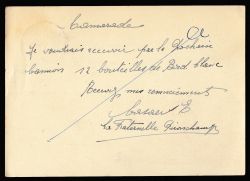 Camarade
Je voudrais recevoir par le prochain
camion 12 bouteilles de Bord blanc
Recevez mes remerciements
La Fraternelle